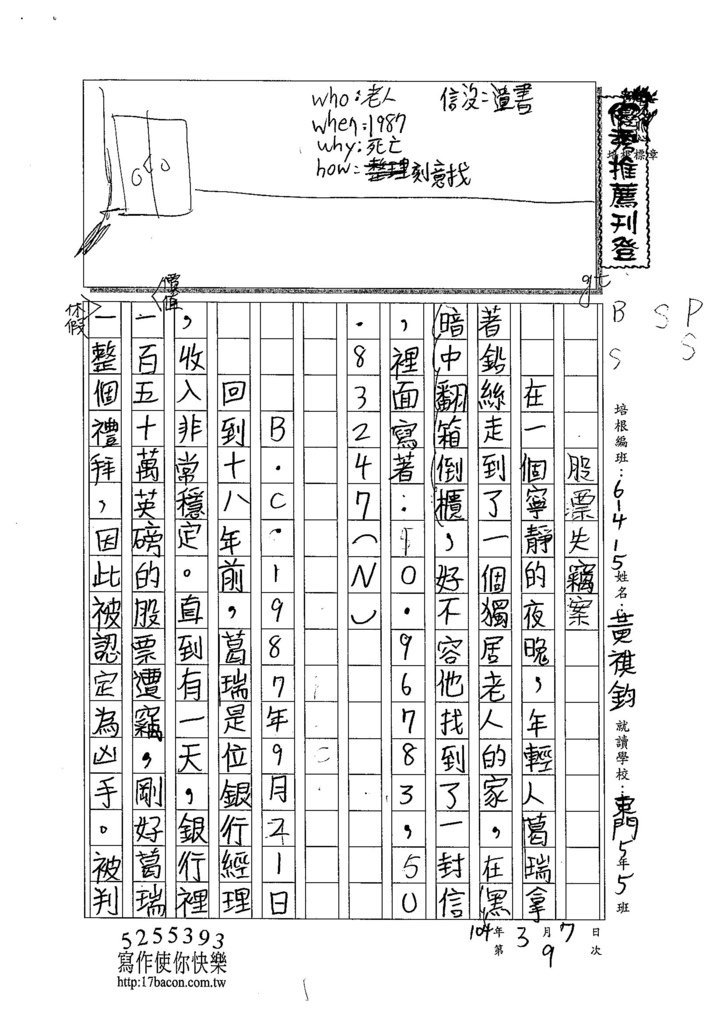 who:老人
when:1987
why:死亡
how:整理刻意找
信沒:遺書
優秀推薦刊登
培根標章
gt
B S P
S S
培根編班:61415 姓名:黃祺鈞 就讀學校:東門5年5班
股漂失竊案
在一個寧靜的夜晚,年輕人葛瑞拿
著鉛絲走到了一個獨居老人的家,在黑
暗中翻箱倒櫃,好不容他找到了一封信
,裡面寫著:10.96783,50
.83247(N)
B.C.1987年9月21日
回到十八年前,葛瑞是位銀行經理
,收入非常穩定。直到有一天,銀行裡
價值
一百五十萬英磅的股票遭竊,剛好葛瑞
休假
一整個禮拜,因此被認定為凶手。被判
104年3月7日
第9次
5255393
寫作使你快樂
http:17bacon.com.tw